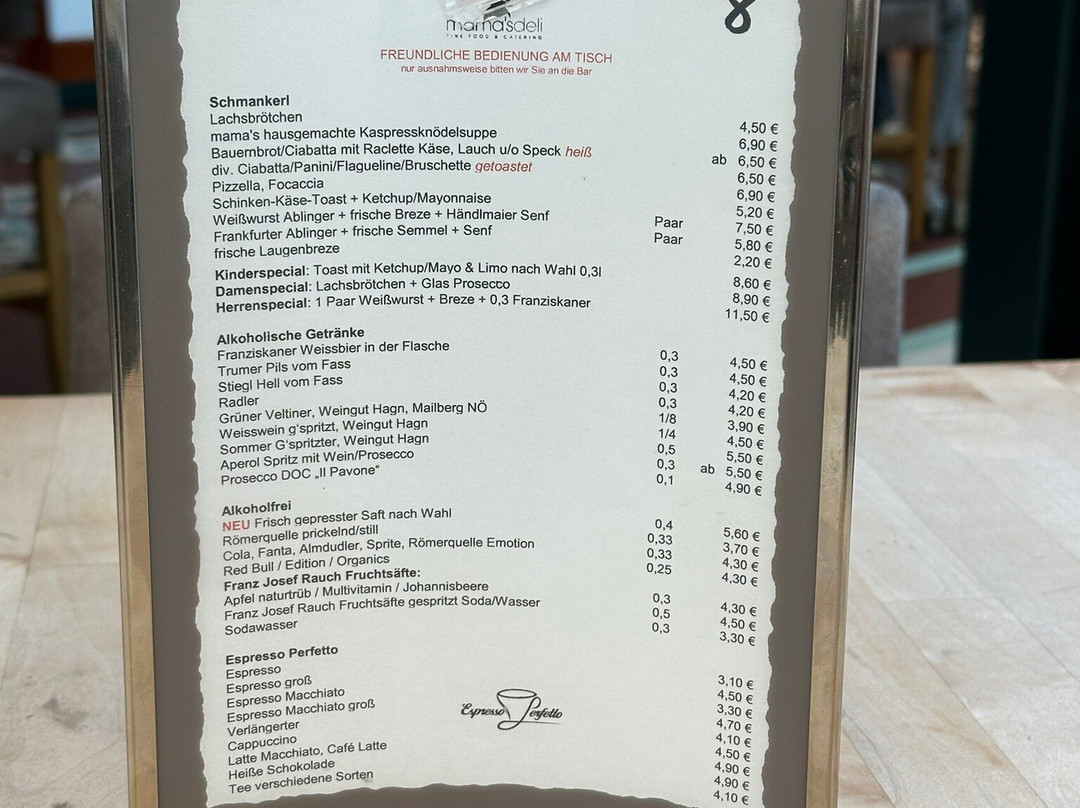 8
mama'sdeli
FINE FOOD & CATERING
FREUNDLICHE BEDIENUNG AM TISCH
nur ausnahmsweise bitten wir Sie an die Bar
Schmankerl
Lachsbrötchen 4,50 €
mama's hausgemachte Kaspressknödelsuppe 6,90 €
Bauernbrot/Ciabatta mit Raclette Käse, Lauch u/o Speck heiß ab 6,50 €
div. Ciabatta/Panini/Flagueline/Bruschette getoastet 6,50 €
Pizzella, Focaccia 6,90 €
Schinken-Käse-Toast + Ketchup/Mayonnaise 5,20 €
Weißwurst Ablinger + frische Breze + Händlmaier Senf Paar 7,50 €
Frankfurter Ablinger + frische Semmel + Senf Paar 5,80 €
frische Laugenbreze 2,20 €
Kinderspecial: Toast mit Ketchup/Mayo & Limo nach Wahl 0,3l 8,60 €
Damenspecial: Lachsbrötchen + Glas Prosecco 8,90 €
Herrenspecial: 1 Paar Weißwurst + Breze + 0,3 Franziskaner 11,50 €
Alkoholische Getränke
Franziskaner Weissbier in der Flasche 0,3 4,50 €
Trumer Pils vom Fass 0,3 4,50 €
Stiegl Hell vom Fass 0,3 4,20 €
Radler 0,3 4,20 €
Grüner Veltiner, Weingut Hagn, Mailberg NÖ 1/8 3,90 €
Weisswein g'spritzt, Weingut Hagn 1/4 4,50 €
Sommer G'spritzter, Weingut Hagn 0,5 5,50 €
Aperol Spritz mit Wein/Prosecco 0,3 ab 5,50 €
Prosecco DOC „Il Pavone“ 0,1 4,90 €
Alkoholfrei
NEU Frisch gepresster Saft nach Wahl 0,4 5,60 €
Römerquelle prickelnd/still 0,33 3,70 €
Cola, Fanta, Almdudler, Sprite, Römerquelle Emotion 0,33 4,30 €
Red Bull / Edition / Organics 0,25 4,30 €
Franz Josef Rauch Fruchtsäfte:
Apfel naturtrüb / Multivitamin / Johannisbeere 0,3 4,30 €
Franz Josef Rauch Fruchtsäfte gespritzt Soda/Wasser 0,5 4,50 €
Sodawasser 0,3 3,30 €
Espresso Perfetto
Espresso 3,10 €
Espresso groß 4,50 €
Espresso Macchiato 3,30 €
Espresso Macchiato groß 4,70 €
Verlängerter 4,10 €
Cappuccino 4,50 €
Latte Macchiato, Café Latte 4,90 €
Heiße Schokolade 4,90 €
Tee verschiedene Sorten 4,10 €
Espresso Perfetto